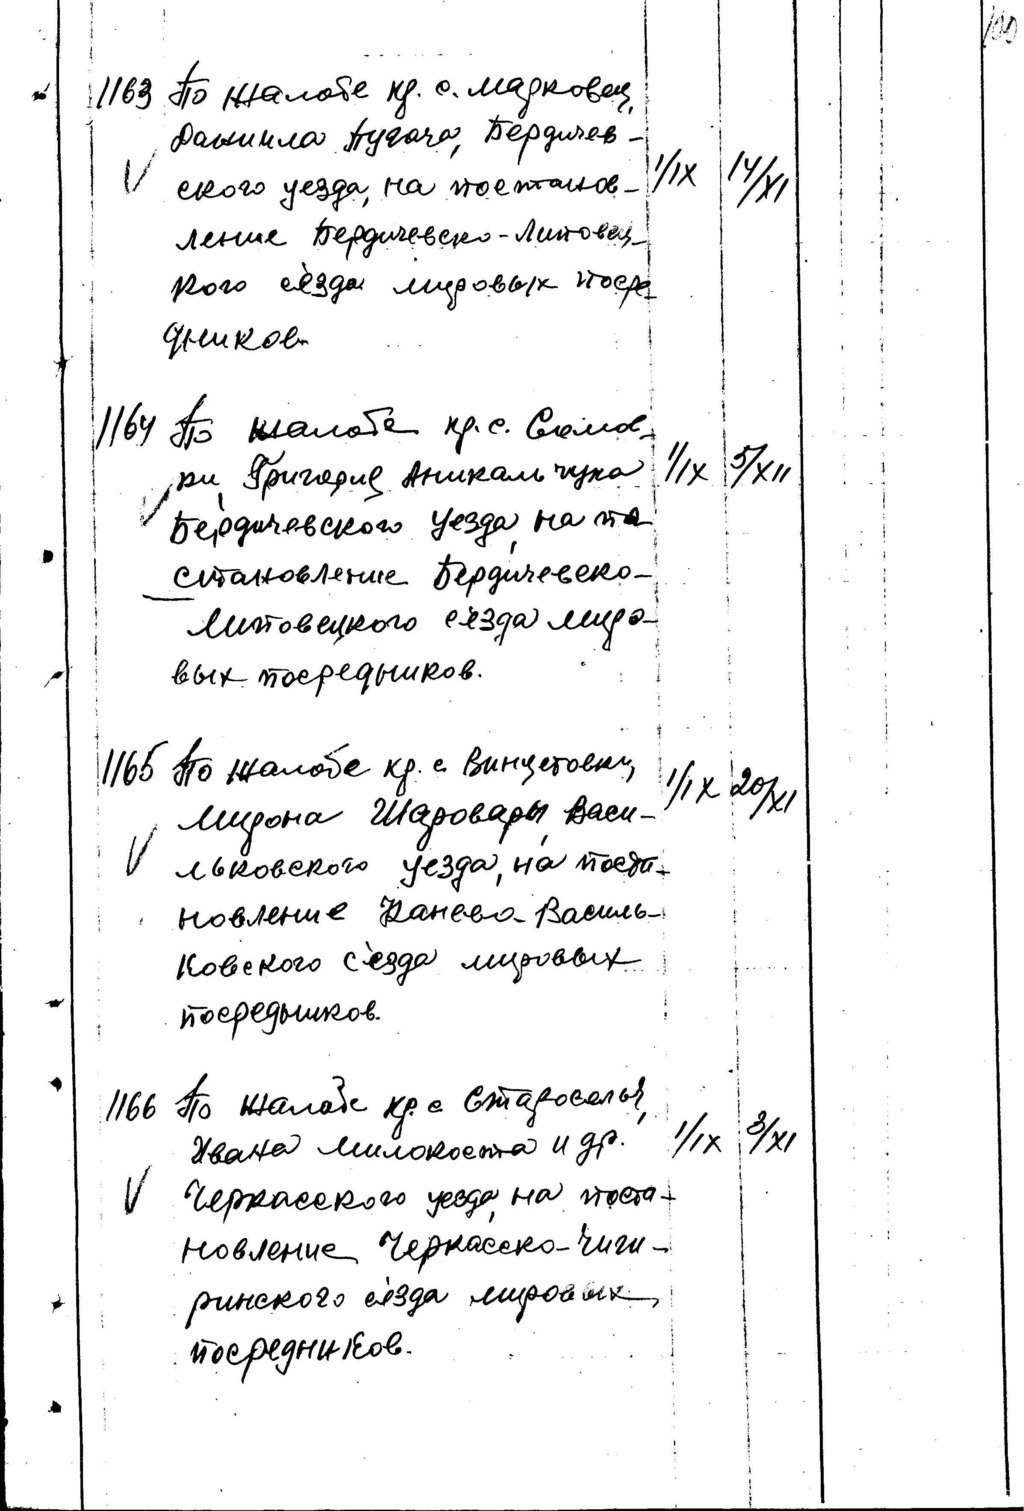 100
1163 По жалобе кр. с. Марковец,
Даниила Пугача, Бердичев-
ского уезда, на постанов- 1/IX 14/XI
ление Бердичевско-Липовец-
кого съезда мировых посре
дников.
1164 По жалобе кр. с.
ки, Григория Аникальчука 1/IX 5/XII
Бердичевского уезда, на по
становление Бердичевско-
Липовецкого съезда миро-
вых посредников.
1165 По жалобе кр. с. Винцетовки, 1/IX 20/XI
Мирона Шаровары, Васи-
льковского уезда, на поста-
новление Канево-Василь-
ковского съезда мировых
посредников.
1166 По жалобе кр. с Староселья,
Ивана Милокоста и др. 1/IX 3/XI
Черкасского уезда, на поста-
новление Черкасско-Чиги-
ринского съезда мировых
посредников.